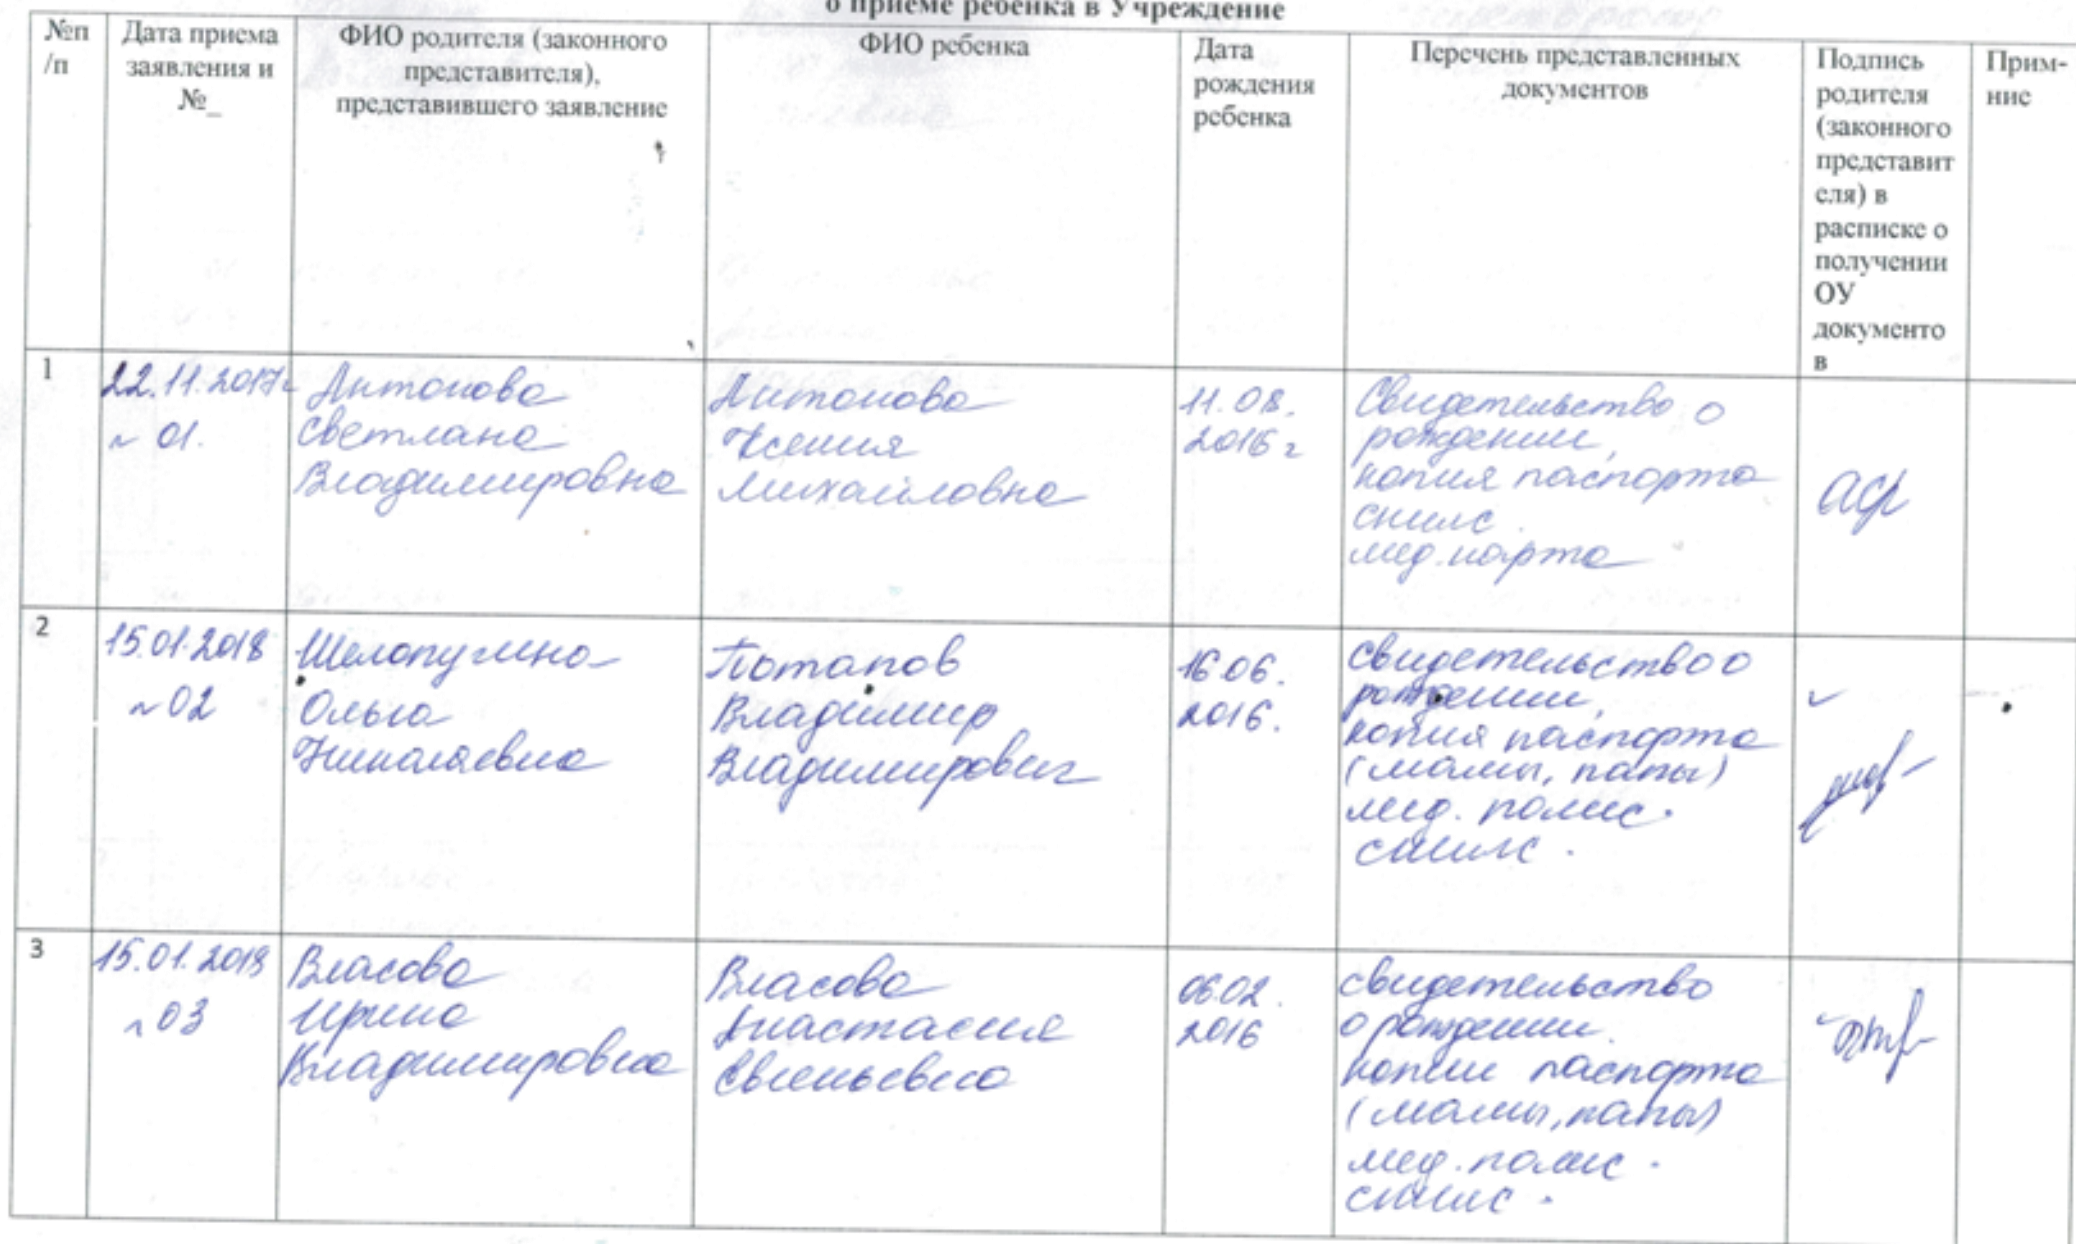 о приеме ребенка в Учреждение
№п
/п
Дата приема
заявления и
№_
ФИО родителя (законного
представителя),
представившего заявление
ФИО ребенка
Дата
рождения
ребенка
Перечень представленных
документов
Подпись
родителя
(законного
представит
еля) в
расписке о
получении
ОУ
документо
в
Прим-
ние
1
22.11.2017г
~ 01.
Антонова
Светлана
Владимировна
Антонова
Ксения
Михайловна
11.08.
2016 г
Свидетельство о
рождении,
копия паспорта
снилс.
мед. карта
2
15.01.2018
~ 02
Шелопугина
Ольга
Николаевна
Потапов
Владимир
Владимирович
16.06.
2016.
свидетельство о
рождении,
копия паспорта
(мамы, папы)
мед. полис.
снилс.
3
15.01.2018
~ 03
Власова
Ирина
Владимировна
Власова
Анастасия
Евгеньевна
06.02.
2016
свидетельство
о рождении.
копии паспорта
(мамы, папы)
мед. полис.
снилс.